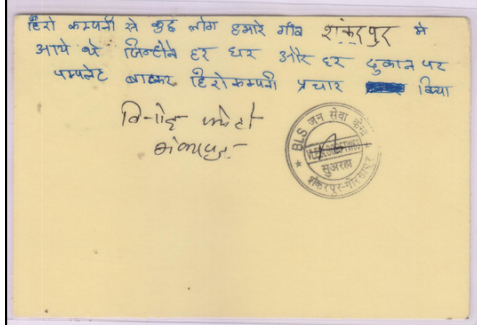 हिरो कम्पनी से कुछ लोग हमारे गाँव शंकरपुर मे
आये थे जिन्होने हर घर और हर दुकान पर
पम्पलेट बाटकर हिरोकम्पनी प्रचार किया
विनोद
BLS जन सेवा केन्द्र
सुअरहा
शंकरपुर-मीरजापुर